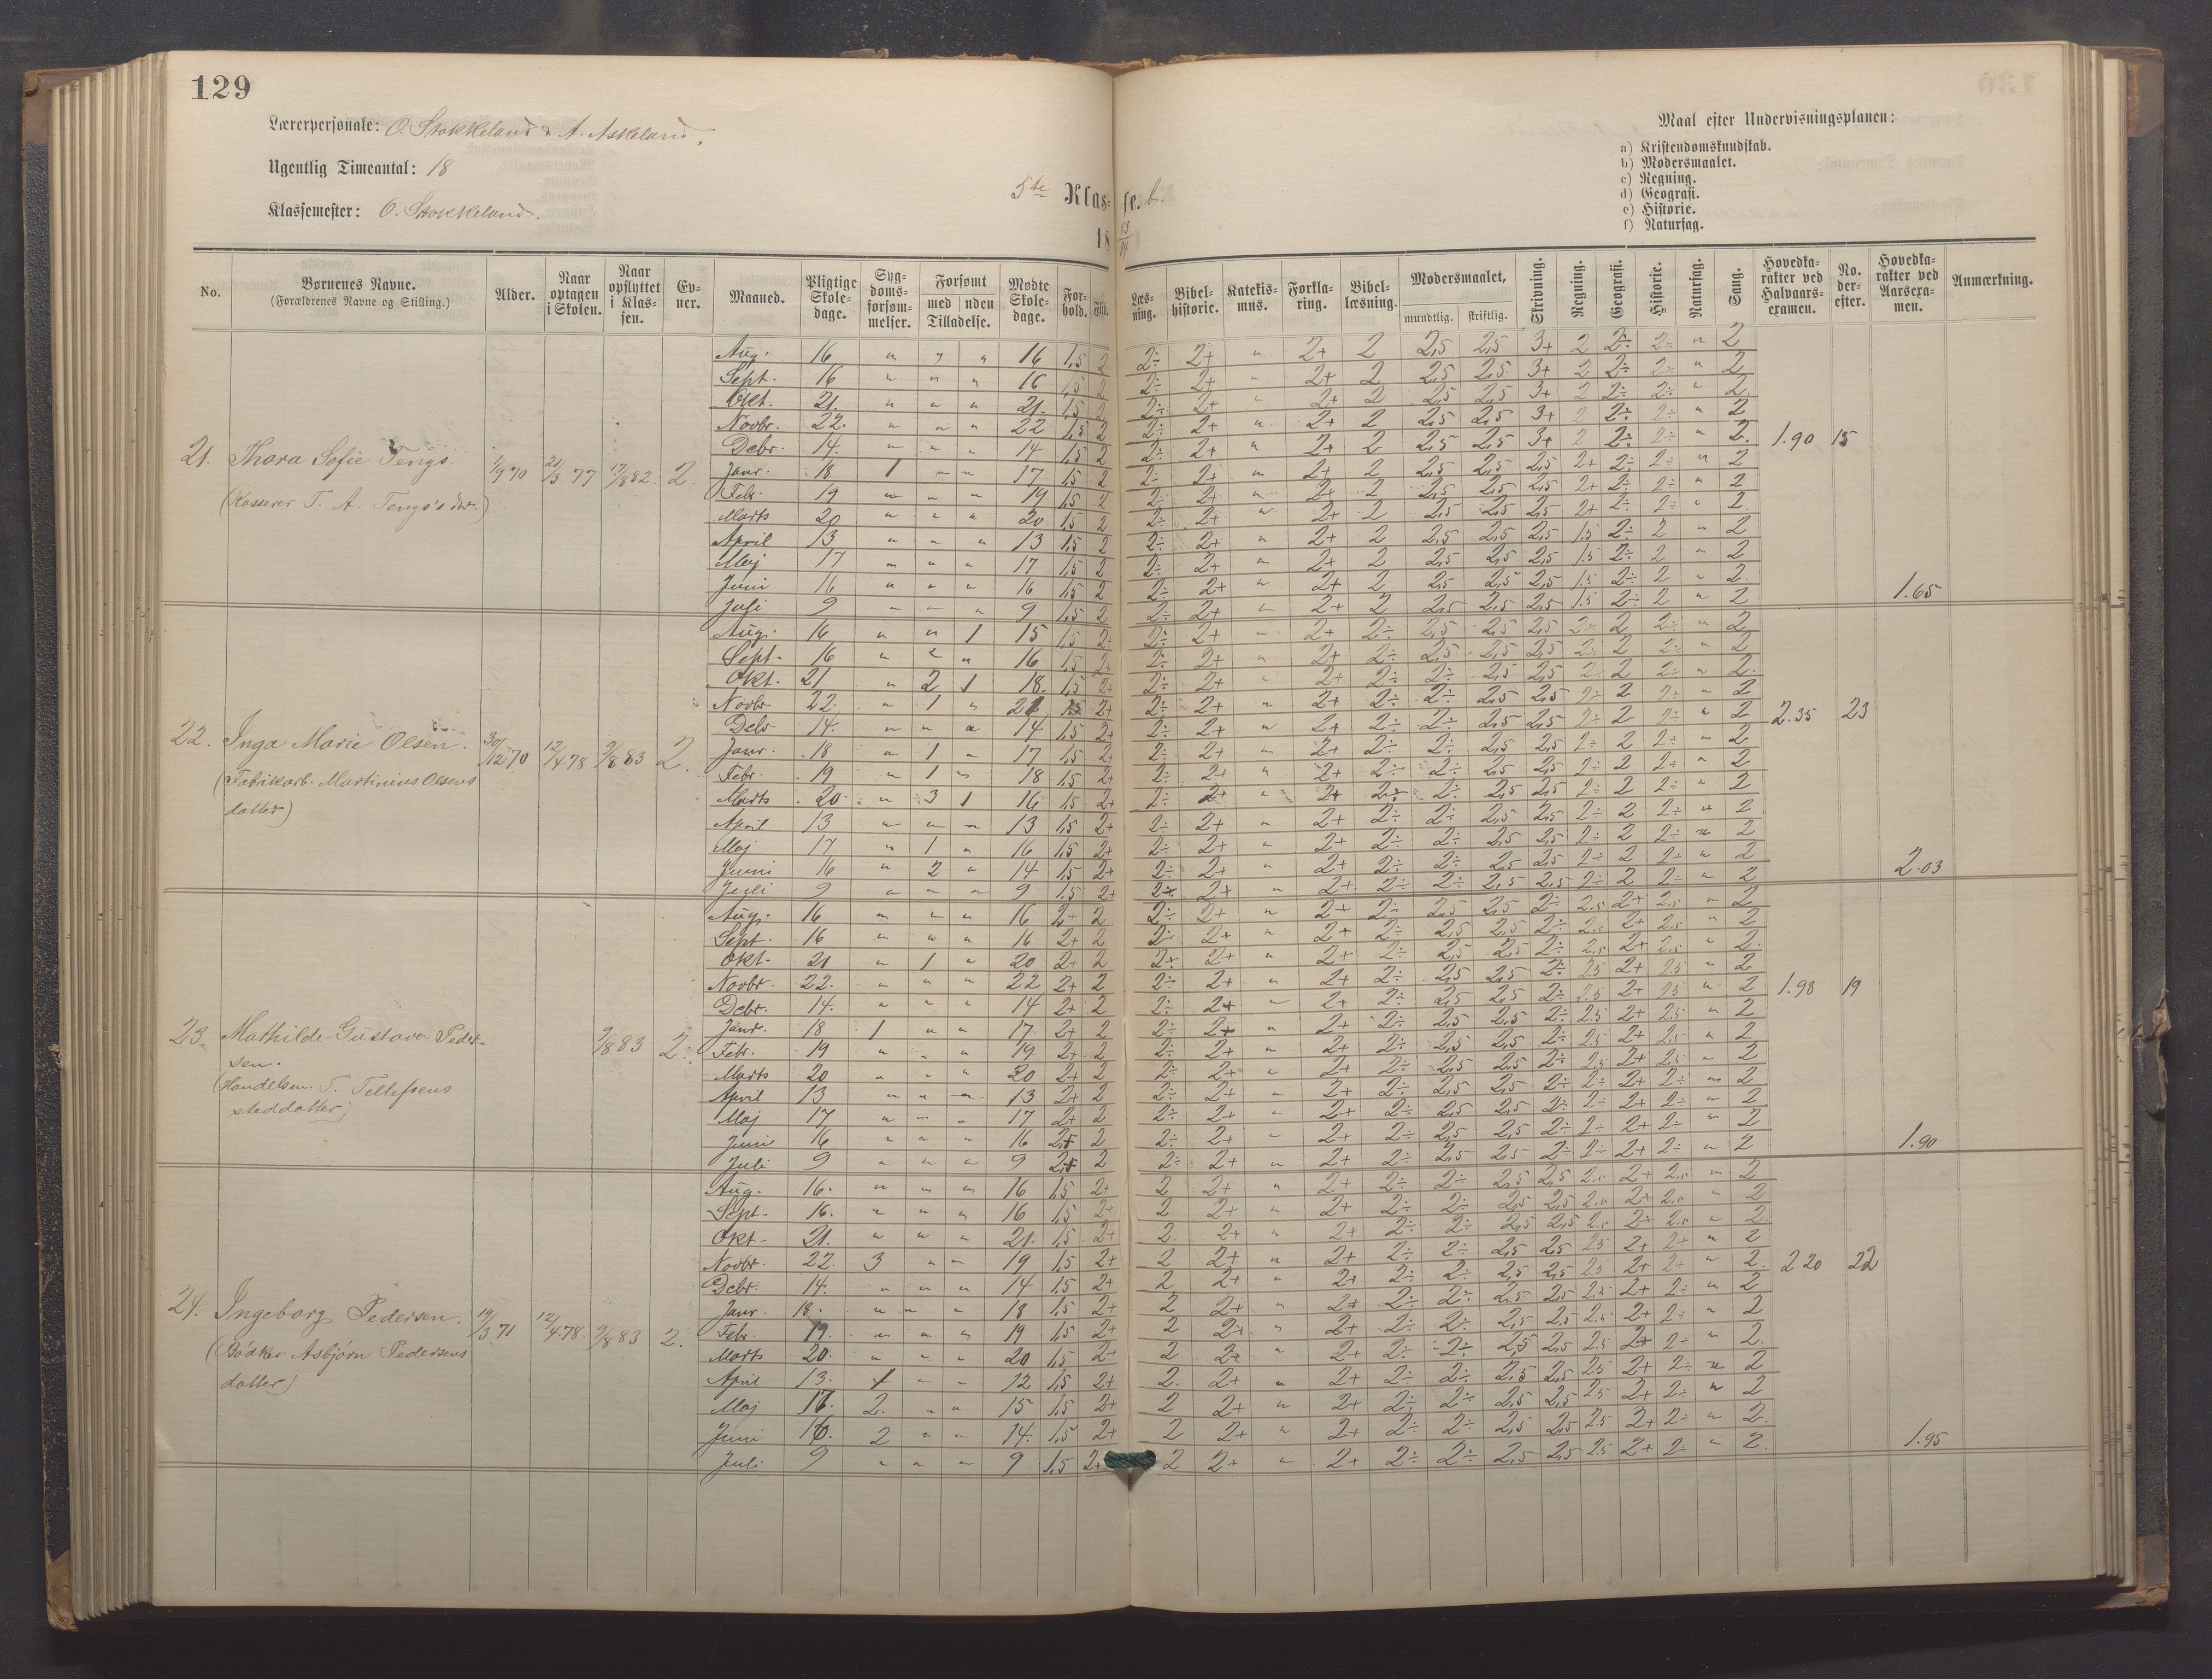 129
Lærerpersonale: O. Stokkeland & A. Askeland.
Ugentlig Timeantal: 18
Klassemester: O. Stokkeland.
5te Klasse. b.
18 83/84
Maal efter Undervisningsplanen:
a) Kristendomskundskab.
b) Modersmaalet.
c) Regning.
d) Geografi.
e) Historie.
f) Naturfag.
No. Børnenes Navne. (Forældrenes Navne og Stilling.) Alder. Naar optagen i Skolen. Naar opflyttet i Klassen. Evner. Maaned. Pligtige Skoledage. Sygdomsforsømmelser. Forsømt med uden Tilladelse. Mødte Skoledage. Forhold. Flid. Læsning. Bibelhistorie. Katekismus. Forklaring. Bibellæsning. Modersmaalet, mundtlig. skriftlig. Skrivning. Regning. Geografi. Historie. Naturfag. Sang. Hovedkarakter ved Halvaarsexamen. No. derefter. Hovedkarakter ved Aarsexamen. Anmærkning.
21. Thora Sofie Tengs. 1/9 70 21/3 77 17/8 82. 2.
(Kasserer T. A. Tengs's dtr.)
Aug. 16 " " " 16 1,5 2 2÷ 2+ " 2+ 2 2,5 2,5 3+ 2 2÷ 2÷ " 2
Sept. 16 " " " 16 1,5 2 2÷ 2+ " 2+ 2 2,5 2,5 3+ 2 2÷ 2÷ " 2
Okt. 21. " " " 21. 1,5 2 2÷ 2+ " 2+ 2 2,5 2,5 3+ 2 2÷ 2÷ " 2.
Novbr. 22. " " " 22 1,5 2 2÷ 2+ " 2+ 2 2,5 2,5 3+ 2 2÷ 2÷ " 2
Debr. 14. " " " 14 1,5 2 2÷ 2+ " 2+ 2 2,5 2,5 3+ 2 2÷ 2÷ " 2. 1.90 15
Janr. 18 1 " " 17 1,5 2 2÷ 2+ " 2+ 2 2,5 2,5 2,5 2+ 2÷ 2÷ " 2
Febr. 19 " " " 19 1,5 2 2÷ 2+ " 2+ 2 2,5 2,5 2,5 2+ 2÷ 2÷ " 2
Marts 20 " " " 20 1,5 2 2÷ 2+ " 2+ 2 2,5 2,5 2,5 2+ 2÷ 2÷ " 2.
April 13 " " " 13 1,5 2 2÷ 2+ " 2+ 2 2,5 2,5 2,5 1.5 2÷ 2 " 2
Maj 17 " " " 17 1,5 2 2÷ 2+ " 2+ 2 2,5 2,5 2,5 1.5 2÷ 2 " 2
Juni 16 " " " 16 1,5 2 2÷ 2+ " 2+ 2 2,5 2,5 2,5 1.5 2÷ 2 " 2.
Juli 9 " " " 9 1,5 2 2÷ 2+ " 2+ 2 2,5 2,5 2,5 1.5 2÷ 2 " 2 1.65
22. Inga Marie Olsen. 30/12 70 12/4 78 9/8 83 2.
(Fabrikarb. Martinius Olsens
datter)
Aug. 16 " " 1 15 1,5 2+ 2÷ 2+ " 2+ 2÷ 2,5 2,5 2,5 2÷ 2 2÷ " 2
Sept. 16 " " " 16 1,5 2+ 2÷ 2+ " 2+ 2÷ 2,5 2,5 2,5 2÷ 2 2÷ " 2
Okt. 21 " 2 1 18. 1,5 2+ 2÷ 2+ " 2+ 2÷ 2÷ 2,5 2,5 2÷ 2 2÷ " 2.
Novbr 22. " 1 " 21 1,5 2+ 2÷ 2+ " 2+ 2÷ 2÷ 2,5 2,5 2÷ 2 2÷ " 2
Debr. 14. " " " 14 1,5 2+ 2÷ 2+ " 2+ 2÷ 2÷ 2,5 2,5 2÷ 2 2÷ " 2 2.35 23
Janr. 18 " 1 " 17 1,5 2+ 2÷ 2+ " 2+ 2÷ 2÷ 2,5 2,5 2÷ 2 2÷ " 2
Febr. 19 " 1 " 18 1,5 2+ 2÷ 2+ " 2+ 2÷ 2÷ 2,5 2,5 2÷ 2 2÷ " 2
Marts 20 " 3 1 16 1,5 2+ 2÷ 2+ " 2+ 2÷ 2÷ 2,5 2,5 2÷ 2 2÷ " 2
April 13 " " " 13 1,5 2+ 2÷ 2+ " 2+ 2÷ 2÷ 2,5 2,5 2÷ 2 2÷ " 2
Maj 17 " 1 " 16 1,5 2+ 2÷ 2+ " 2+ 2÷ 2÷ 2,5 2,5 2÷ 2 2÷ " 2
Juni 16 " 2 " 14 1,5 2+ 2÷ 2+ " 2+ 2÷ 2÷ 2,5 2,5 2÷ 2 2÷ " 2
Juli 9 " " " 9 1.5 2+ 2÷ 2+ " 2+ 2÷ 2÷ 2,5 2,5 2÷ 2 2÷ " 2 2.03
23. Mathilde Gustava Peder-
sen. 9/8 83 2.
(Handelsm. T. Tellefsens
steddatter)
Aug. 16 " " " 16 2+ 2 2÷ 2+ " 2+ 2÷ 2,5 2,5 2÷ 2.5 2+ 2.5 " 2
Sept. 16 " " " 16 2+ 2 2÷ 2+ " 2+ 2÷ 2,5 2,5 2÷ 2.5 2+ 2.5 " 2
Okt. 21 " 1 " 20 2+ 2 2÷ 2+ " 2+ 2÷ 2,5 2,5 2÷ 2.5 2+ 2.5 " 2.
Novbr. 22. " " " 22 2+ 2 2÷ 2+ " 2+ 2÷ 2,5 2,5 2÷ 2.5 2+ 2.5 " 2
Debr. 14. " " " 14 2+ 2 2÷ 2+ " 2+ 2÷ 2,5 2,5 2÷ 2.5 2+ 2.5 " 2 1.98 19
Janr. 18 1 " " 17 2+ 2 2÷ 2+ " 2+ 2÷ 2,5 2,5 2÷ 2.5 2+ 2.5 " 2
Febr. 19 " " " 19 2+ 2 2÷ 2+ " 2+ 2÷ 2,5 2,5 2÷ 2.5 2+ 2.5 " 2
Marts 20 " " " 20 2+ 2 2÷ 2+ " 2+ 2÷ 2,5 2,5 2÷ 2.5 2+ 2.5 " 2
April 13 " " " 13 2+ 2 2÷ 2+ " 2+ 2÷ 2,5 2,5 2÷ 2÷ 2+ 2÷ " 2
Maj 17 " " " 17 2+ 2 2÷ 2+ " 2+ 2÷ 2,5 2,5 2÷ 2÷ 2+ 2÷ " 2
Juni 16 " " " 16 2+ 2 2÷ 2+ " 2+ 2÷ 2,5 2,5 2÷ 2÷ 2+ 2÷ " 2
Juli 9 " " " 9 2+ 2 2÷ 2+ " 2+ 2÷ 2,5 2,5 2÷ 2÷ 2+ 2÷ " 2 1.90
24. Ingeborg Pedersen. 19/3 71 12/4 78. 9/8 83 2.
(Bødker Asbjørn Pedersens
datter)
Aug. 16. " " " 16 1,5 2+ 2 2+ " 2+ 2÷ 2÷ 2,5 2,5 2.5 2+ 2.5 " 2
Sept. 16. " " " 16 1,5 2+ 2 2+ " 2+ 2÷ 2÷ 2,5 2,5 2.5 2+ 2.5 " 2
Okt. 21. " " " 21. 1,5 2+ 2. 2+ " 2+ 2÷ 2÷ 2,5 2,5 2.5 2+ 2.5 " 2.
Novbr. 22. 3 " " 19 1,5 2+ 2 2+ " 2+ 2÷ 2÷ 2,5 2,5 2.5 2+ 2÷ " 2
Debr. 14. " " " 14 1,5 2+ 2 2+ " 2+ 2÷ 2÷ 2,5 2,5 2.5 2+ 2÷ " 2. 2.20 22
Janr. 18. " " " 18 1,5 2+ 2 2+ " 2+ 2÷ 2÷ 2,5 2,5 2.5 2+ 2÷ " 2
Febr. 19. " " " 19 1,5 2+ 2 2+ " 2+ 2÷ 2÷ 2,5 2,5 2.5 2+ 2÷ " 2
Marts 20. " " " 20 1,5 2+ 2 2+ " 2+ 2÷ 2÷ 2,5 2,5 2.5 2+ 2÷ " 2.
April 13. 1 " " 12 1,5 2+ 2. 2+ " 2+ 2÷ 2÷ 2,5 2,5 2.5 2+ 2÷ " 2
Maj 17. 2. " " 15 1,5 2+ 2 2+ " 2+ 2÷ 2÷ 2,5 2,5 2.5 2+ 2÷ " 2
Juni 16. 2 " " 14. 1,5 2+ 2 2+ " 2+ 2÷ 2÷ 2,5 2,5 2.5 2+ 2÷ " 2.
Juli 9 " " " 9 1,5 2+ 2 2+ " 2+ 2÷ 2÷ 2,5 2,5 2.5 2+ 2÷ " 2. 1.95